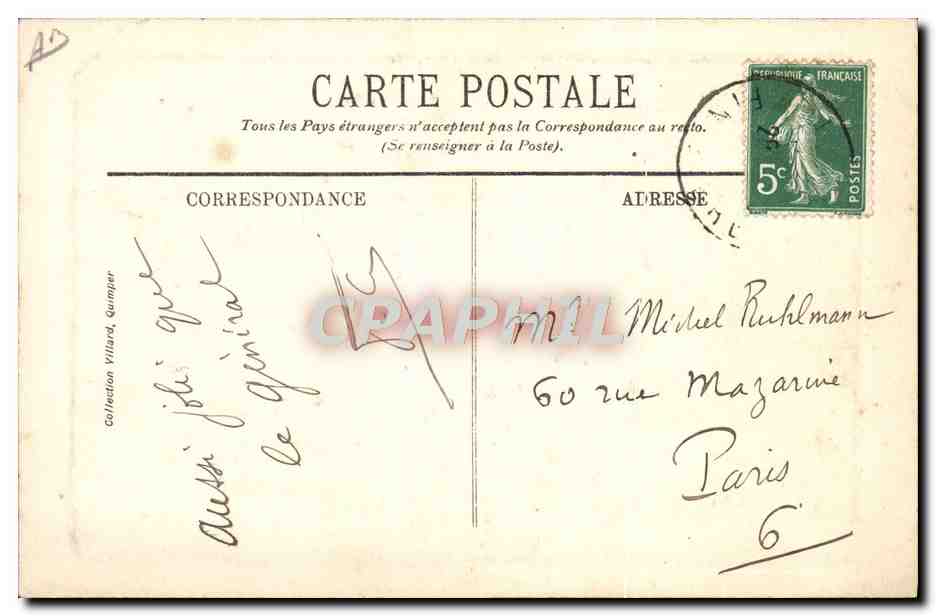 AB
CARTE POSTALE
Tous les Pays étrangers n'acceptent pas la Correspondance au recto.
(Se renseigner à la Poste).
REPUBLIQUE FRANÇAISE
5c
POSTES
CORRESPONDANCE
ADRESSE
Collection Villard, Quimper
aussi joli que
le général
CPAPHIL
Mr Michel Ruhlmann
60 rue Mazarine
Paris
6